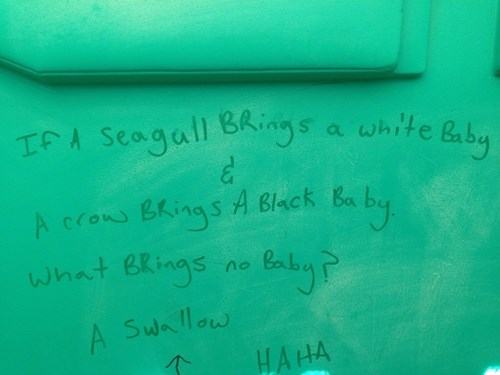 If A Seagull BRings a white Baby
&
A crow BRings A Black Baby.
What BRings no Baby?
A Swallow
↑ HAHA